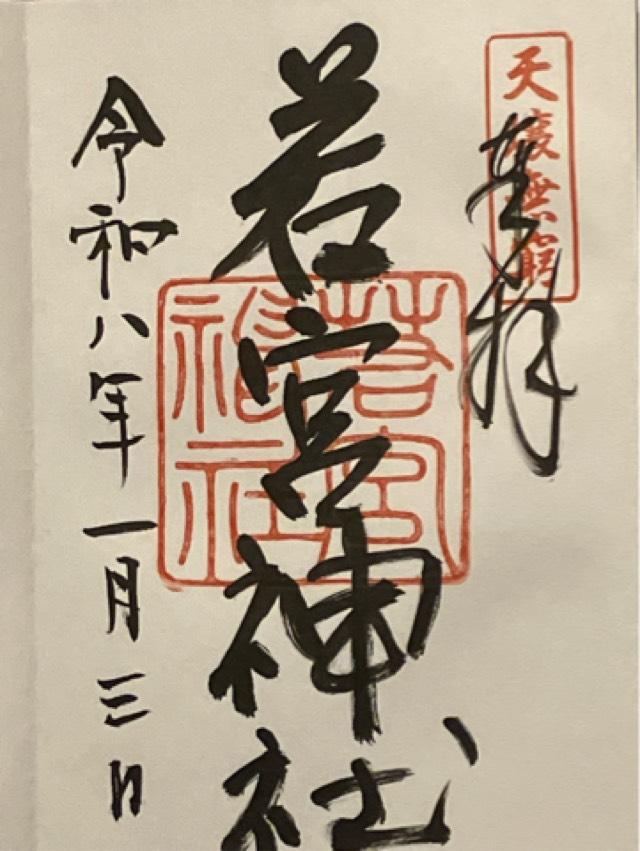 天壌無窮
奉拝
若宮神社
若宮神社
令和八年一月三日